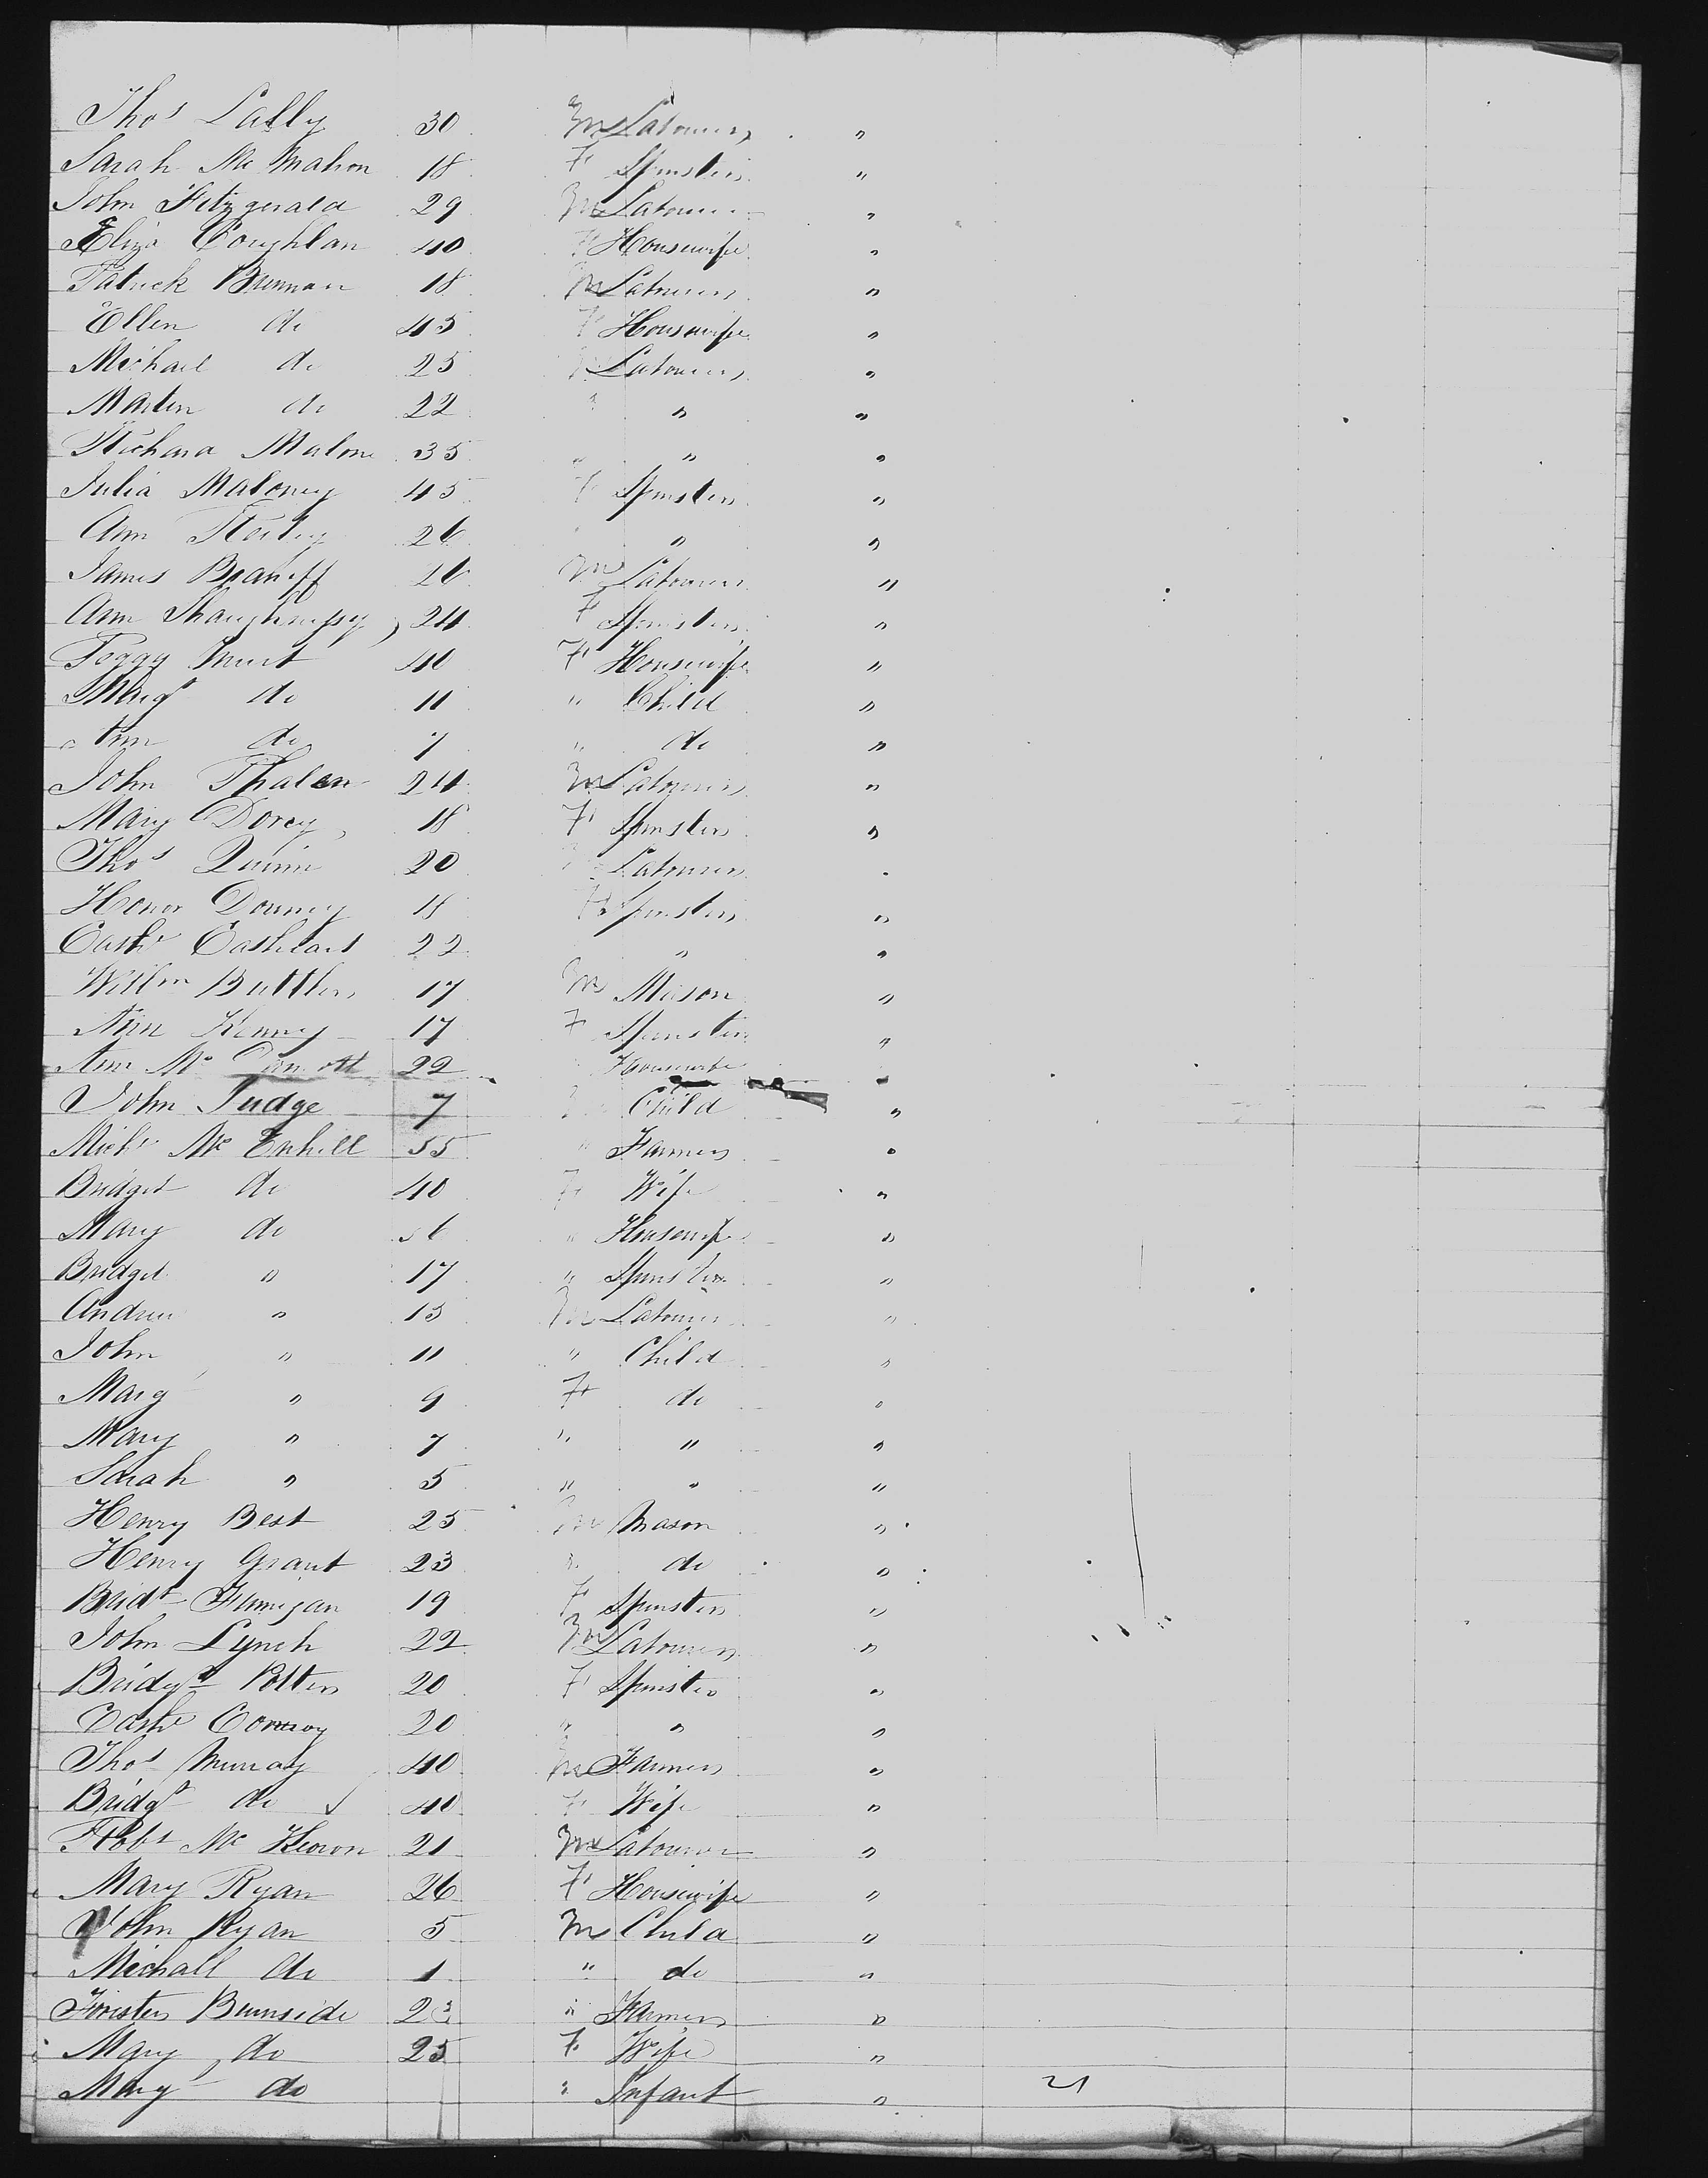 Thos Lally 30 m Labourer "
Sarah Mc Mahon 18 F Spinster "
John Fitzgerald 29 m Labourer "
Eliza Coughlan 40 F Housewife "
Patrick Brennan 18 m Labourer "
Ellen do 45 F Housewife "
Michael do 25 Labourer "
Martin do 22 " " "
Richard Malone 35 " " "
Julia Maloney 45 F Spinster "
Ann 26 " "
James Braniff 26 m Labourer "
Ann Shaughnessy 24 F Spinster "
Peggy 40 F Housewife "
Margt do 11 " Child "
Ann do 7 " do "
John Phalen 24 m Labourer "
Mary Dorcy 18 F Spinster "
Thos Quinn 20 Labourer "
Honor Downey 18 F Spinster "
Cathe 22 " "
Willm Buttler 17 m Mason "
Ann Kenny 17 F Spinster "
Ann Mc Dermott 22 Housewife "
John Judge 7 Child "
Michl Mc Enhill 55 " Farmer "
Bridget do 40 F Wife "
Mary do " Housewife "
Bridget " 17 " Spinster "
Andrew " 15 m Labourer "
John " 11 " Child "
Marg " 9 F do "
Mary " 7 " " "
Sarah " 5 " " "
Henry Best 25 m Mason "
Henry Grant 23 " do "
Bridt Finnigan 19 F Spinster "
John Lynch 22 m Labourer "
Bridgt Potter 20 F Spinster "
Cathe Conroy 20 " " "
Thos Murray 40 m Farmer "
Bridgt do 40 F Wife "
Robt Mc Keown 21 m Labourer "
Mary Ryan 26 F Housewife "
John Ryan 5 m Child "
Michall do 1 " do "
Forister Burnside 23 " Farmer "
Mary do 25 F Wife "
Mary do " Infant " 21